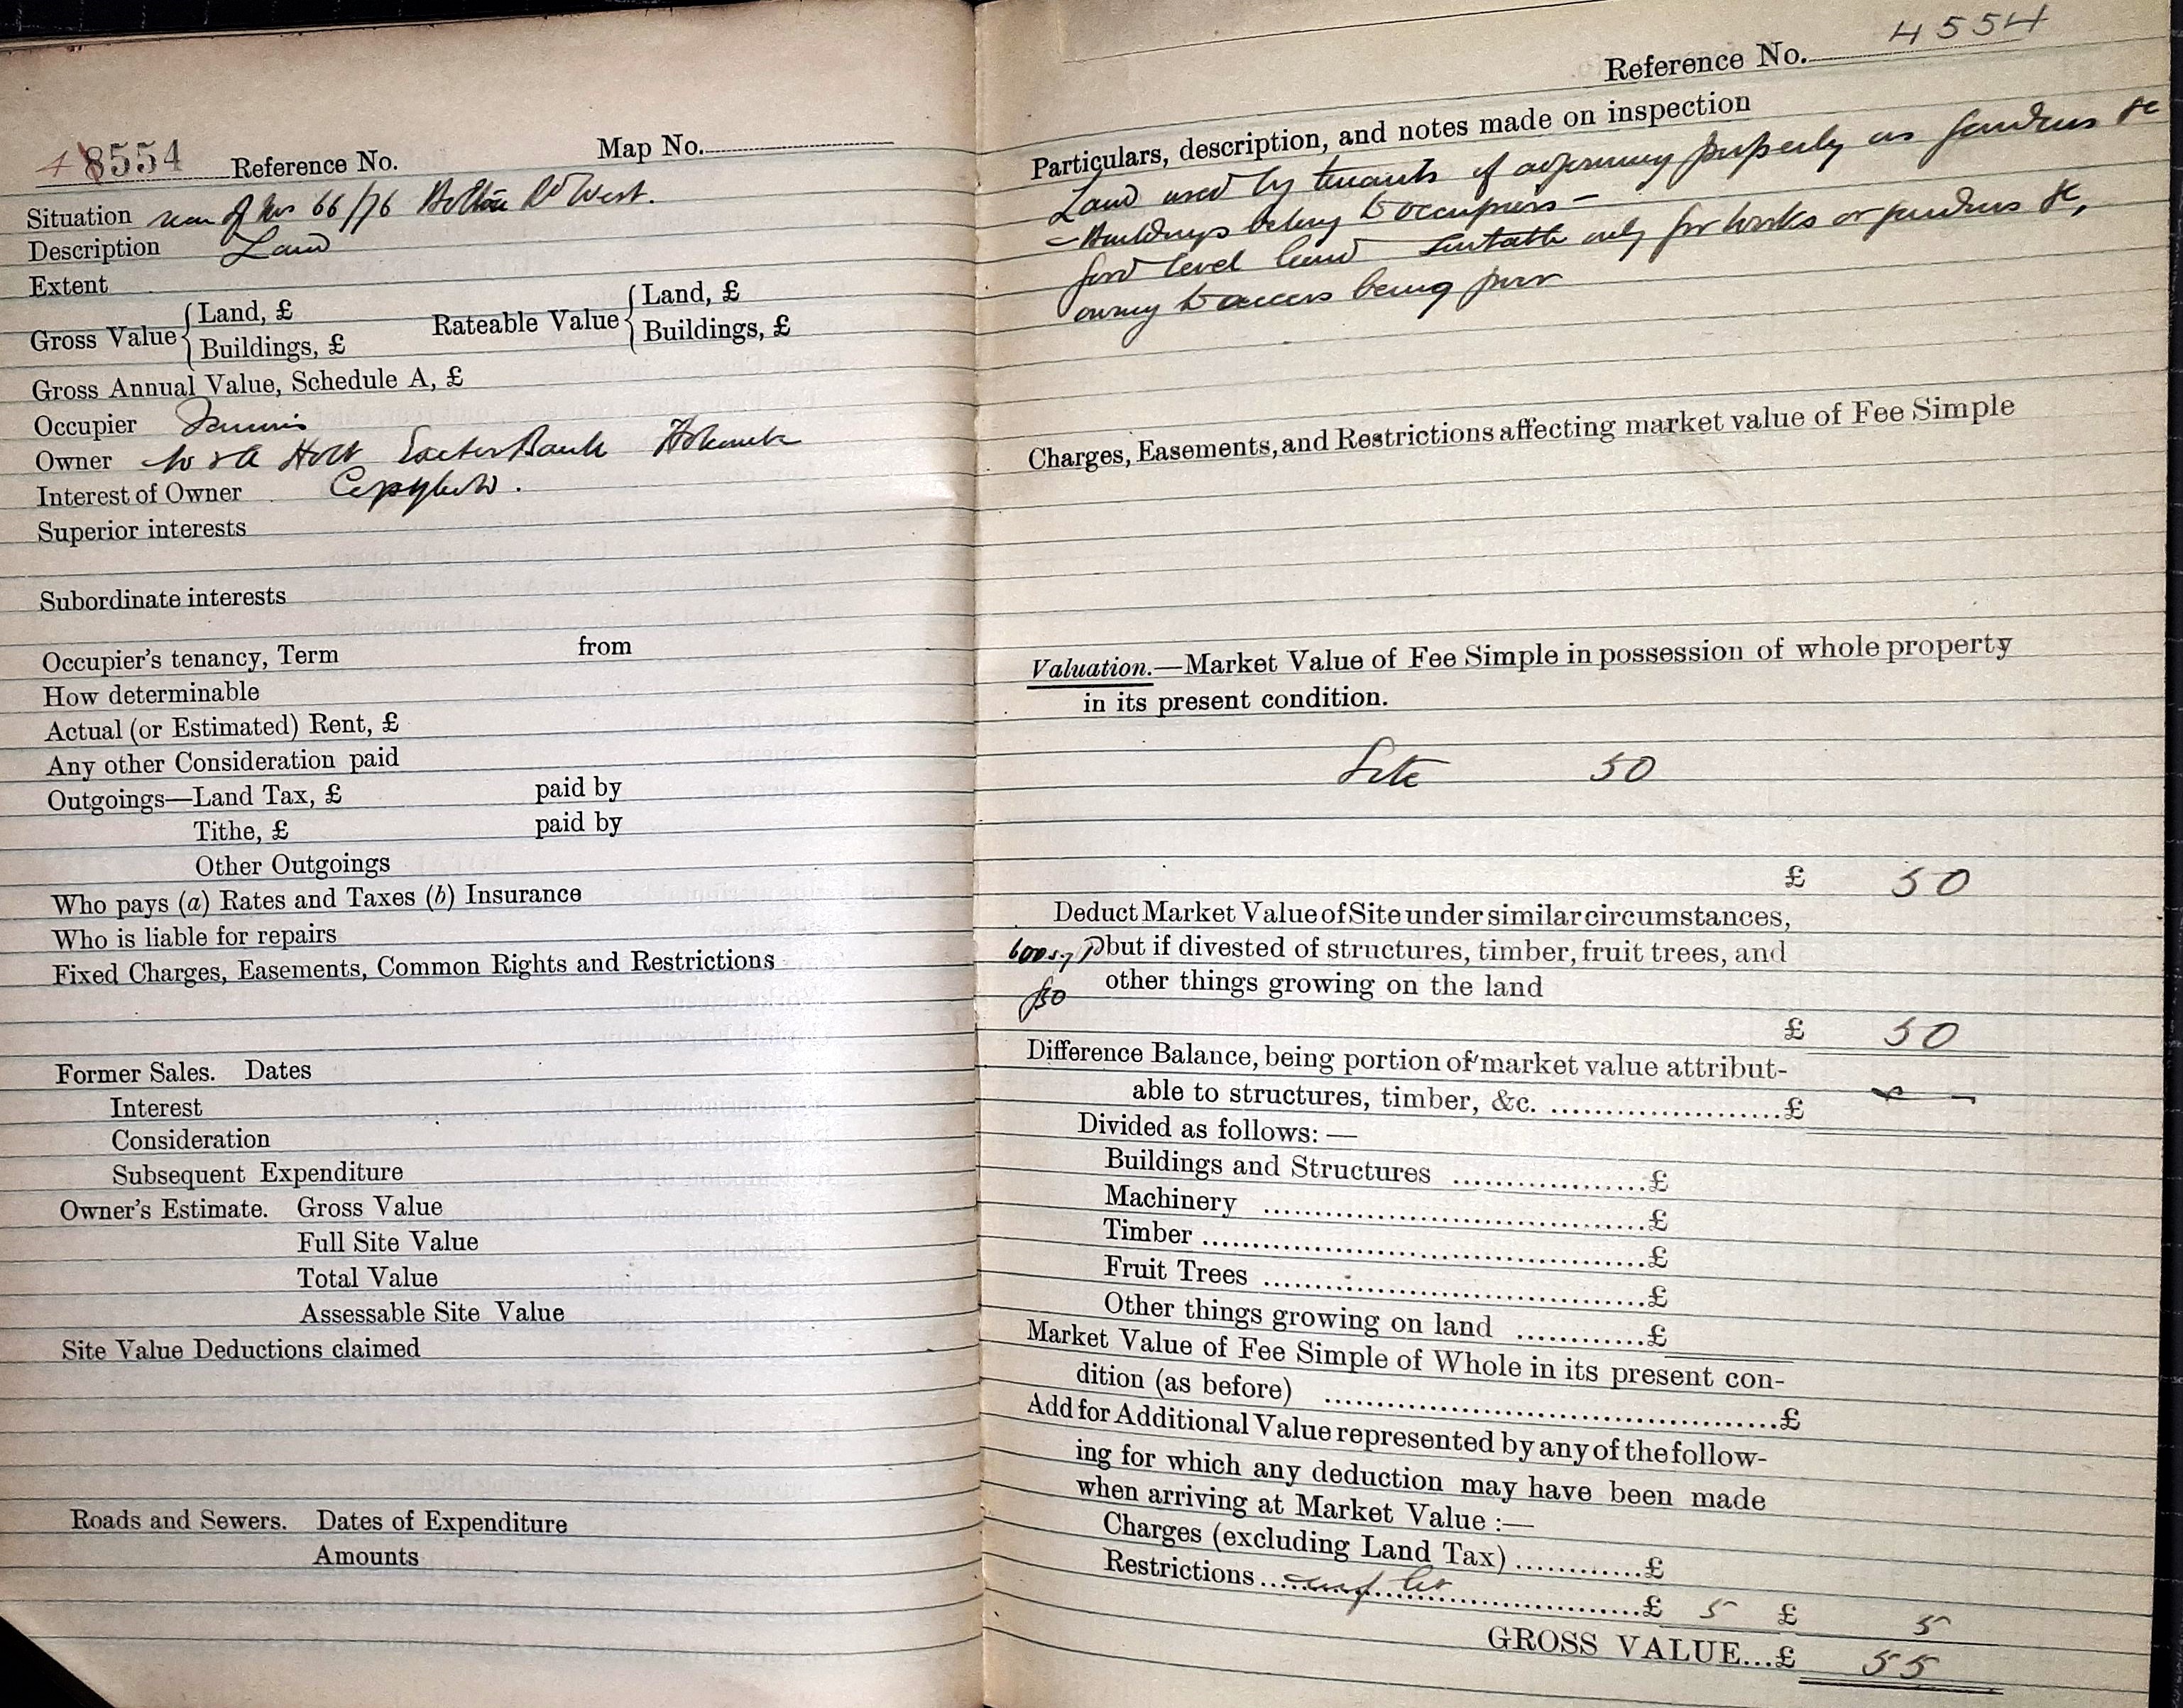 4 8554 Reference No. Map No.
Situation rear of Nos 66/76 Bolton Rd West.
Description Land
Extent
Gross Value { Land, £ Rateable Value { Land, £
Buildings, £ Buildings, £
Gross Annual Value, Schedule A, £
Occupier
Owner W & A Holt Bank Holcombe
Interest of Owner Copyhold.
Superior interests
Subordinate interests
Occupier's tenancy, Term from
How determinable
Actual (or Estimated) Rent, £
Any other Consideration paid
Outgoings—Land Tax, £ paid by
Tithe, £ paid by
Other Outgoings
Who pays (a) Rates and Taxes (b) Insurance
Who is liable for repairs
Fixed Charges, Easements, Common Rights and Restrictions
Former Sales. Dates
Interest
Consideration
Subsequent Expenditure
Owner's Estimate. Gross Value
Full Site Value
Total Value
Assessable Site Value
Site Value Deductions claimed
Roads and Sewers. Dates of Expenditure
Amounts
Reference No. 4554
Particulars, description, and notes made on inspection
Land used by tenants of adjoining property as gardens &c
— Buildings belong to occupiers —
Good level land suitable only for works or gardens &c,
owing to access being poor
Charges, Easements, and Restrictions affecting market value of Fee Simple
Valuation.—Market Value of Fee Simple in possession of whole property
in its present condition.
Site 50
£ 50
Deduct Market Value of Site under similar circumstances,
600 s.y but if divested of structures, timber, fruit trees, and
£50 other things growing on the land
£ 50
Difference Balance, being portion of market value attribut-
able to structures, timber, &c. ......................£ —
Divided as follows: —
Buildings and Structures ...................£
Machinery ......................................£
Timber .............................................£
Fruit Trees ......................................£
Other things growing on land ............£
Market Value of Fee Simple of Whole in its present con-
dition (as before) .............................................£
Add for Additional Value represented by any of the follow-
ing for which any deduction may have been made
when arriving at Market Value :—
Charges (excluding Land Tax) ............£
Restrictions ......................................£ 5 £ 5
GROSS VALUE...£ 55